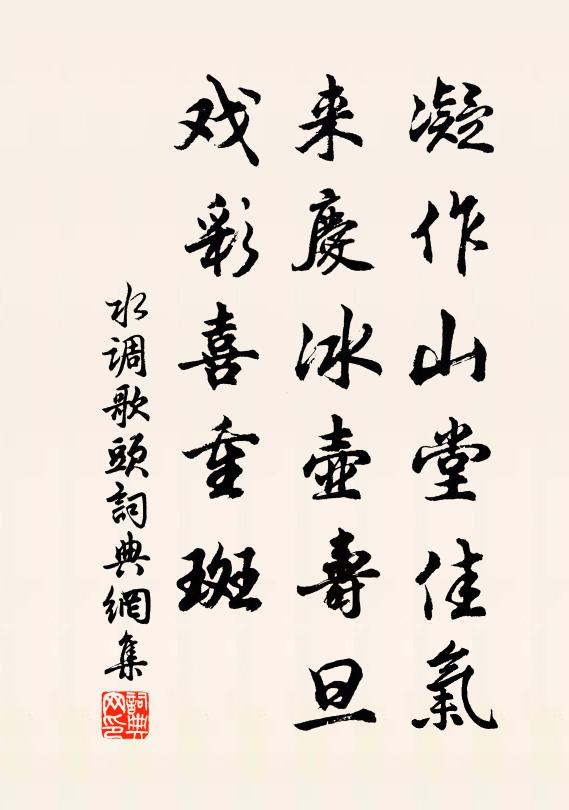 凝作山堂佳氣
来慶冰壺壽旦
戏彩喜重斑
水调歌頭詞典網集
詞典网印